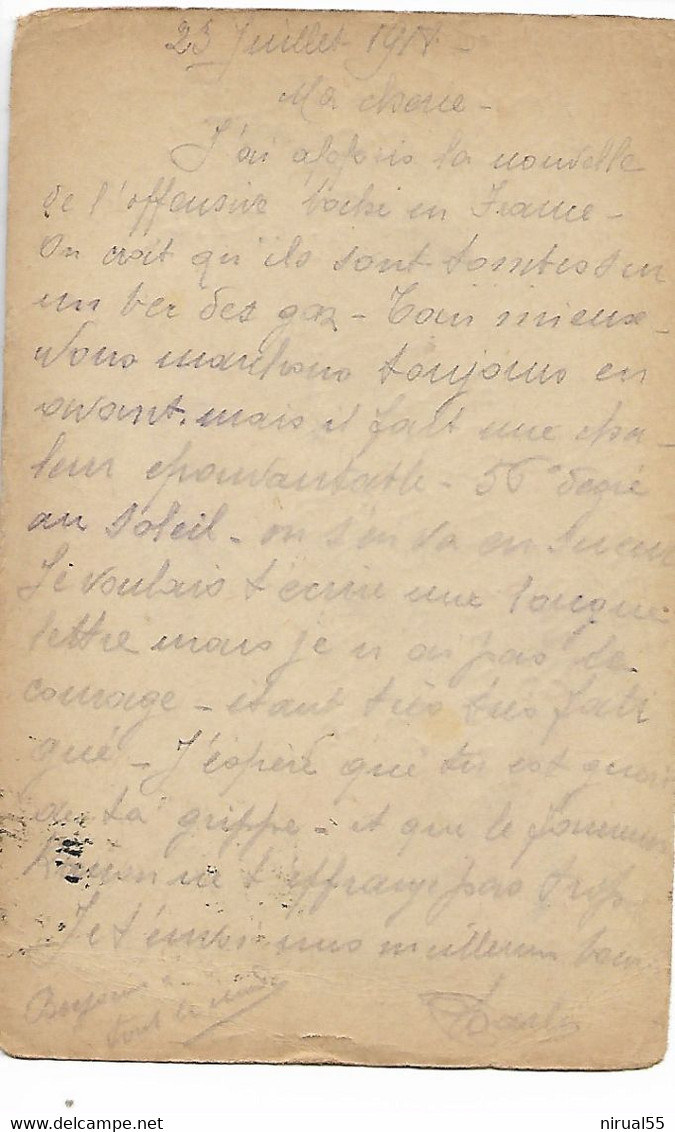 23 Juillet 1918 -
Ma cherie -
J'ai appris la nouvelle
de l'offensive boche en France -
On croit qu'ils sont tombes sur
un bec des gaz - Tant mieux -
Nous marchons toujours en
avant. mais il fait une cha-
leur epouvantable - 56° degré
au soleil - on s'en va en sueur
Je voulais t'écrire une longue
lettre mais je n'ai pas le
courage - etant très très fati
gué - J'espère que tu est guéri
de ta grippe - et que le fameux
ne t'effraye pas trop -
Je t'envoi mes meilleurs bais
Bonjour à
tout le monde
Charles
delcampe.net
nirual55